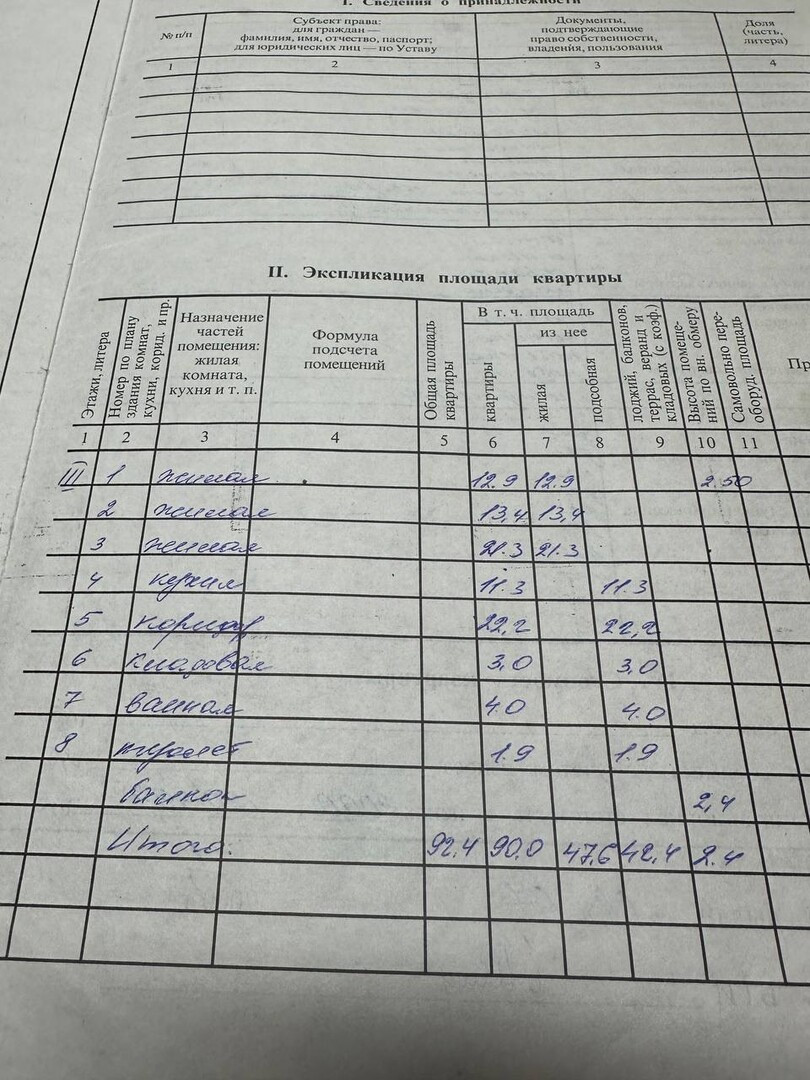 I. Сведения о принадлежности
№ п/п
Субъект права:
для граждан —
фамилия, имя, отчество, паспорт;
для юридических лиц — по Уставу
Документы,
подтверждающие
право собственности,
владения, пользования
Доля
(часть,
литера)
1 2 3 4
II. Экспликация площади квартиры
Этажи, литера
Номер по плану
здания комнат,
кухни, корид. и пр.
Назначение
частей
помещения:
жилая
комната,
кухня и т. п.
Формула
подсчета
помещений
Общая площадь
квартиры
В т. ч. площадь
квартиры
из нее
жилая
подсобная
лоджий, балконов,
террас, веранд и
кладовых (с коэф.)
Высота помеще-
ний по вн. обмеру
Самовольно пере-
оборуд. площадь
Пр
1 2 3 4 5 6 7 8 9 10 11
III 1 жилая 12.9 12.9 2.50
2 жилая 13,4 13,4
3 жилая 21.3 21.3
4 кухня 11.3 11.3
5 коридор 22,2 22,2
6 кладовая 3,0 3,0
7 ванная 4.0 4.0
8 туалет 1.9 1.9
балкон 2,4
Итого. 92.4 90.0 47,6 42,4 2.4